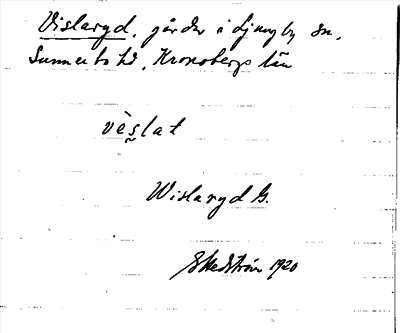 Vislaryd, gårdar i Ljungby sn,
Sunnerbo hd, Kronobergs län
vèslat
Wislaryd G.
E Hedström 1920